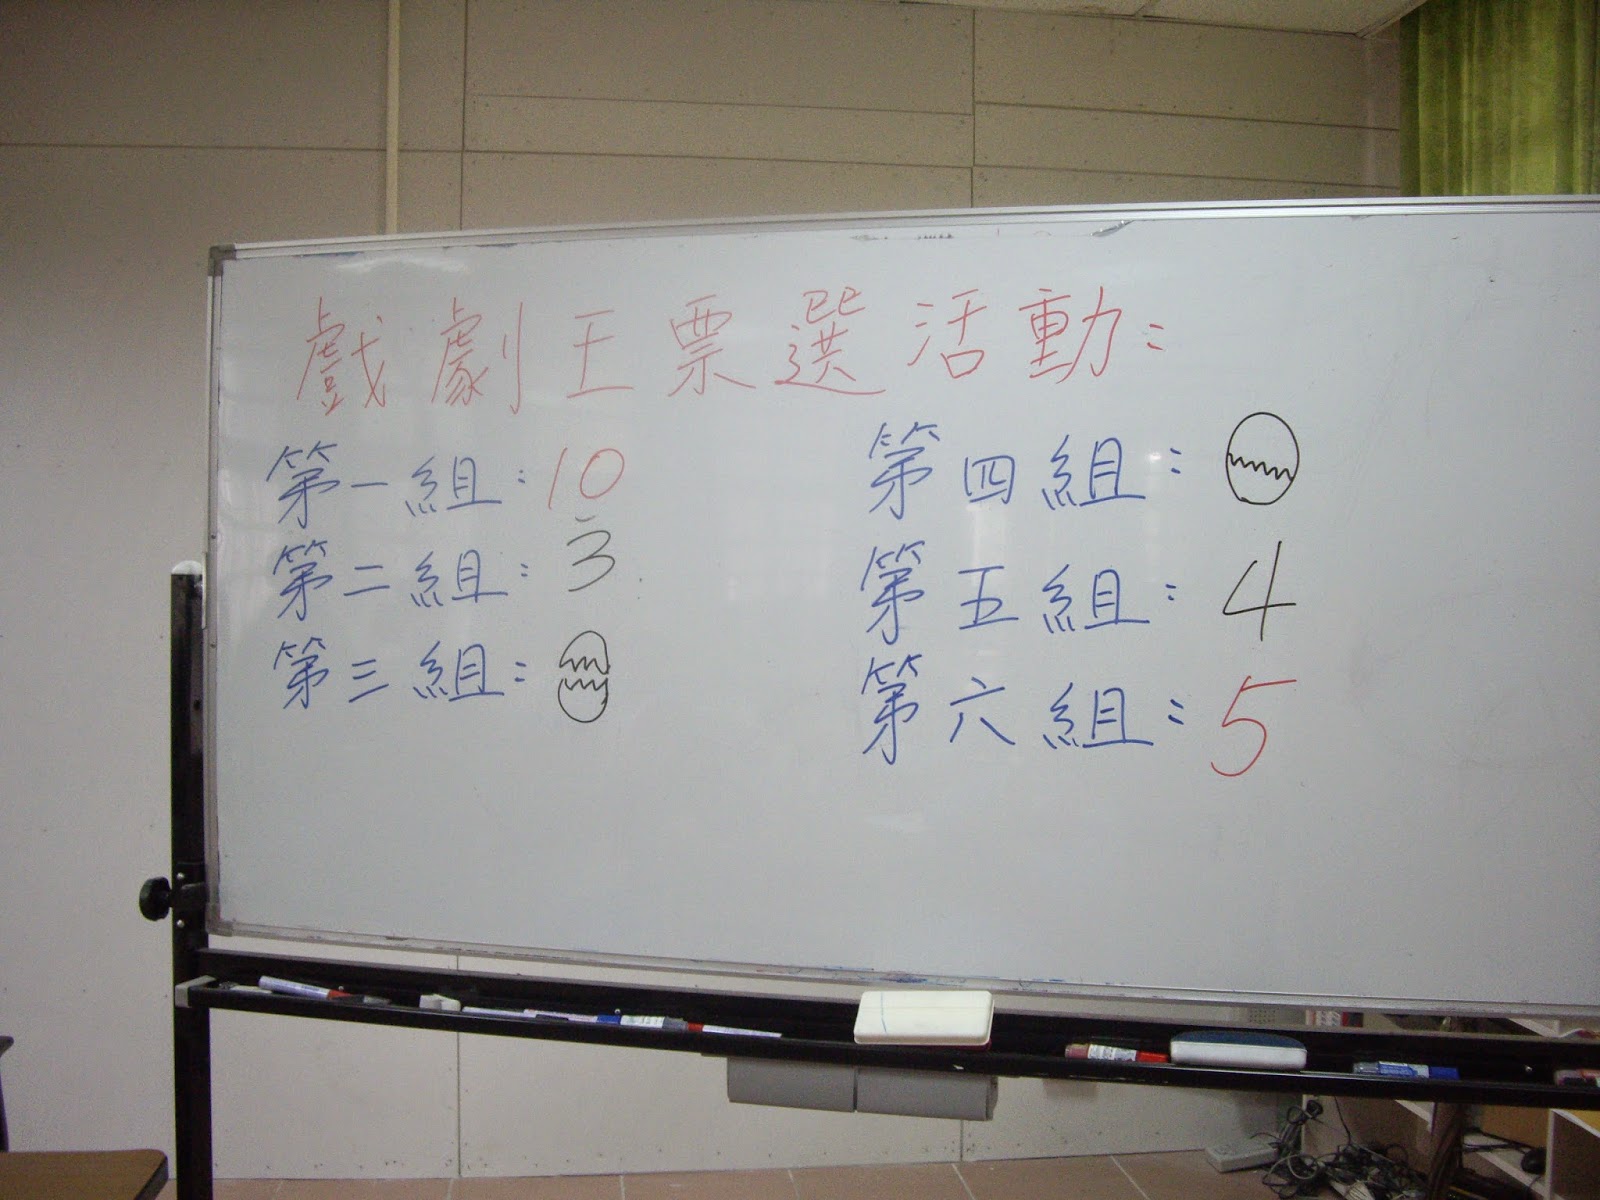 戲劇王票選活動:
第一組:10
第二組:3
第三組:
第四組:
第五組:4
第六組:5